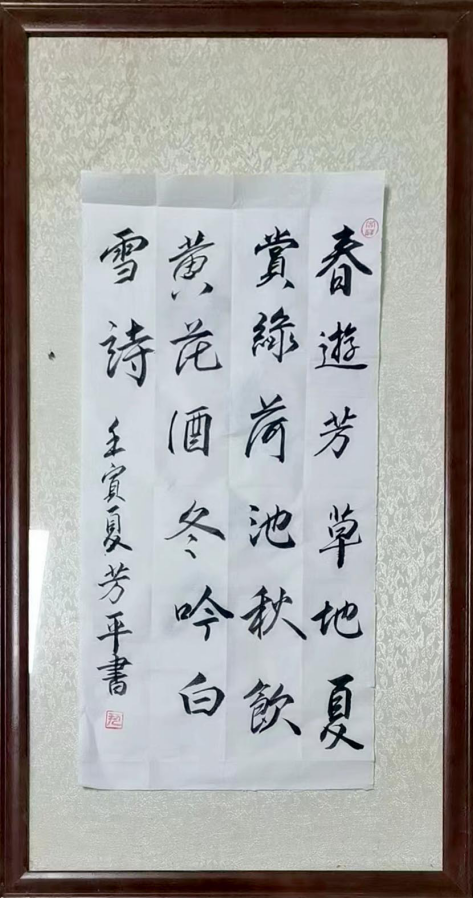 春遊芳草地夏
賞綠荷池秋飲
黄花酒冬吟白
雪詩
壬寅夏芳平書